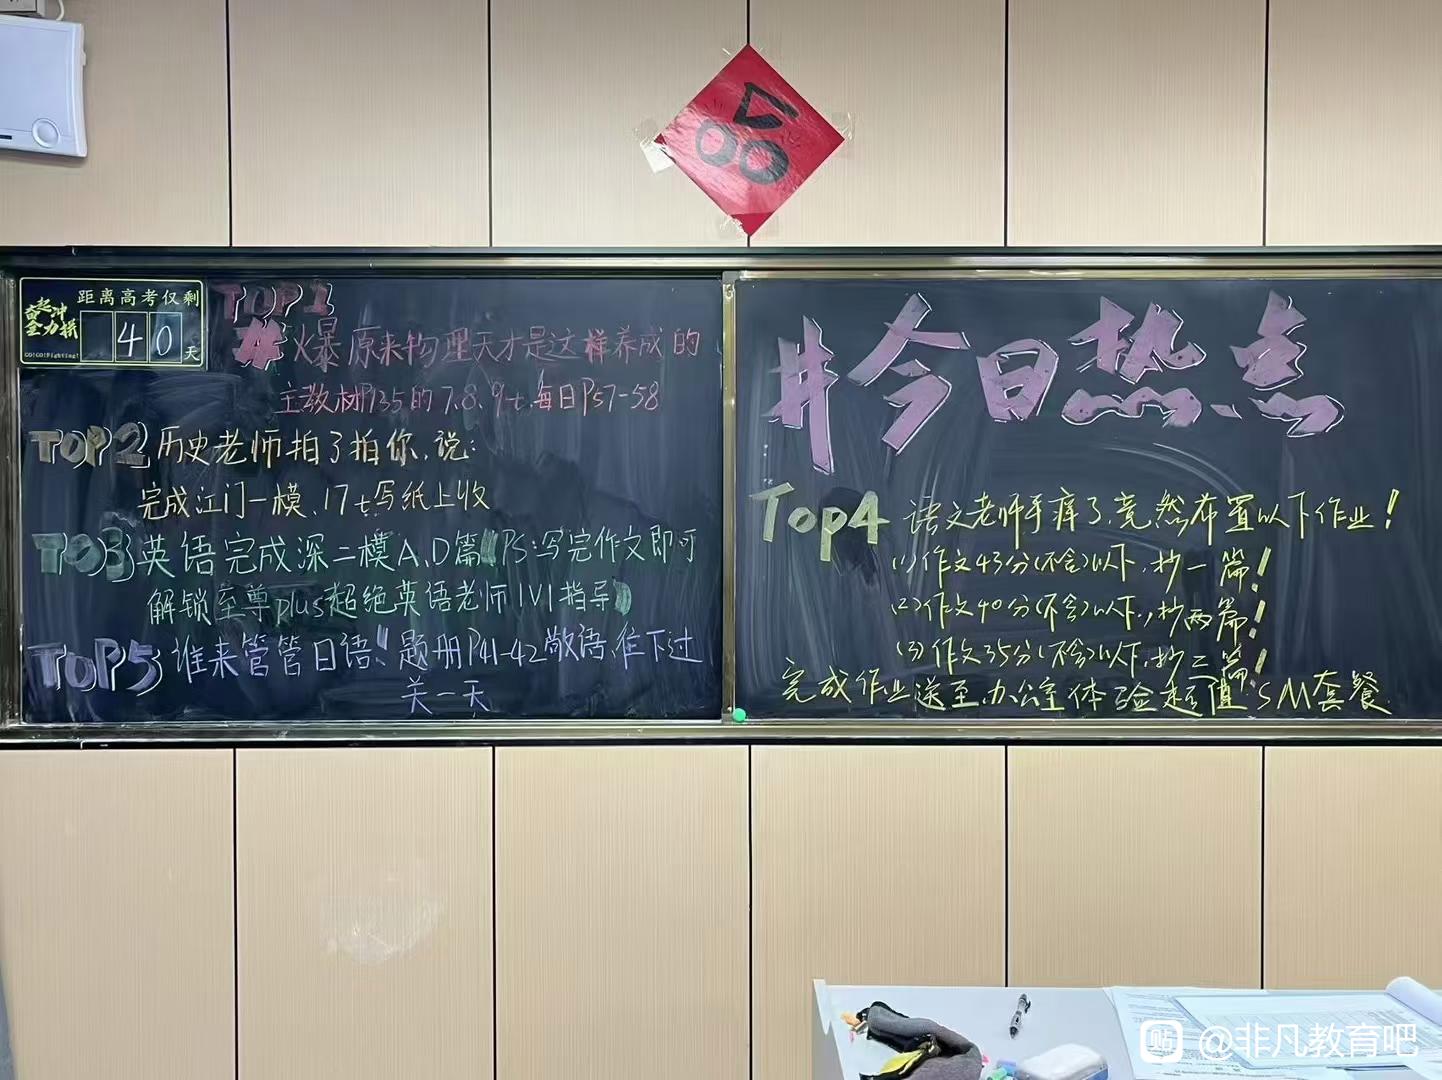 距离高考仅剩
奋起冲
全力拼
GO!GO!Fighting!
40天
TOP1
#爆 原来物理天才是这样养成的
主教材P135的7、8、9t,每日P57-58
TOP2 历史老师拍了拍你,说:
完成江门一模,17t写纸上收
TOP3 英语完成深二模A、D篇(PS:写完作文即可
解锁至尊plus超绝英语老师1V1指导)
TOP5 谁来管管日语!题册P41-42敬语,往下过
关一天
#今日热点
Top4 语文老师手痒了,竟然布置以下作业!
(1)作文43分(不含)以下,抄一篇!
(2)作文40分(不含)以下,抄两篇!
(3)作文35分(不含)以下,抄三篇!
完成作业送至办公室体验超值SM套餐
贴 @非凡教育吧